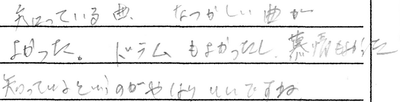 知っている曲、なつかしい曲が
よかった。ドラムもよかったし、幕情もよかった
知っているというのがやはりいいですね